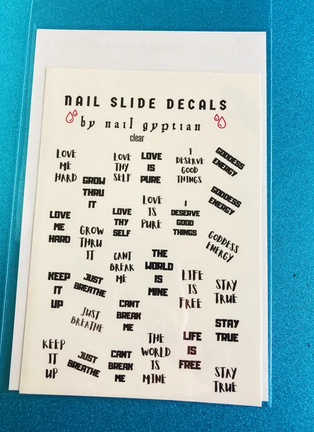 NAIL SLIDE DECALS
by nail gyptian
clear
LOVE
ME
HARD
GROW
THRU
IT
LOVE
THY
SELF
LOVE
IS
PURE
I
DESERVE
GOOD
THINGS
GODDESS
ENERGY
LOVE
ME
HARD
GROW
THRU
IT
LOVE
THY
SELF
LOVE
IS
PURE
I
DESERVE
GOOD
THINGS
GODDESS
ENERGY
GODDESS
ENERGY
KEEP
IT
UP
JUST
BREATHE
CANT
BREAK
ME
THE
WORLD
IS
MINE
LIFE
IS
FREE
STAY
TRUE
JUST
BREATHE
CANT
BREAK
ME
STAY
TRUE
KEEP
IT
UP
JUST
BREATHE
CANT
BREAK
ME
THE
WORLD
IS
MINE
LIFE
IS
FREE
STAY
TRUE